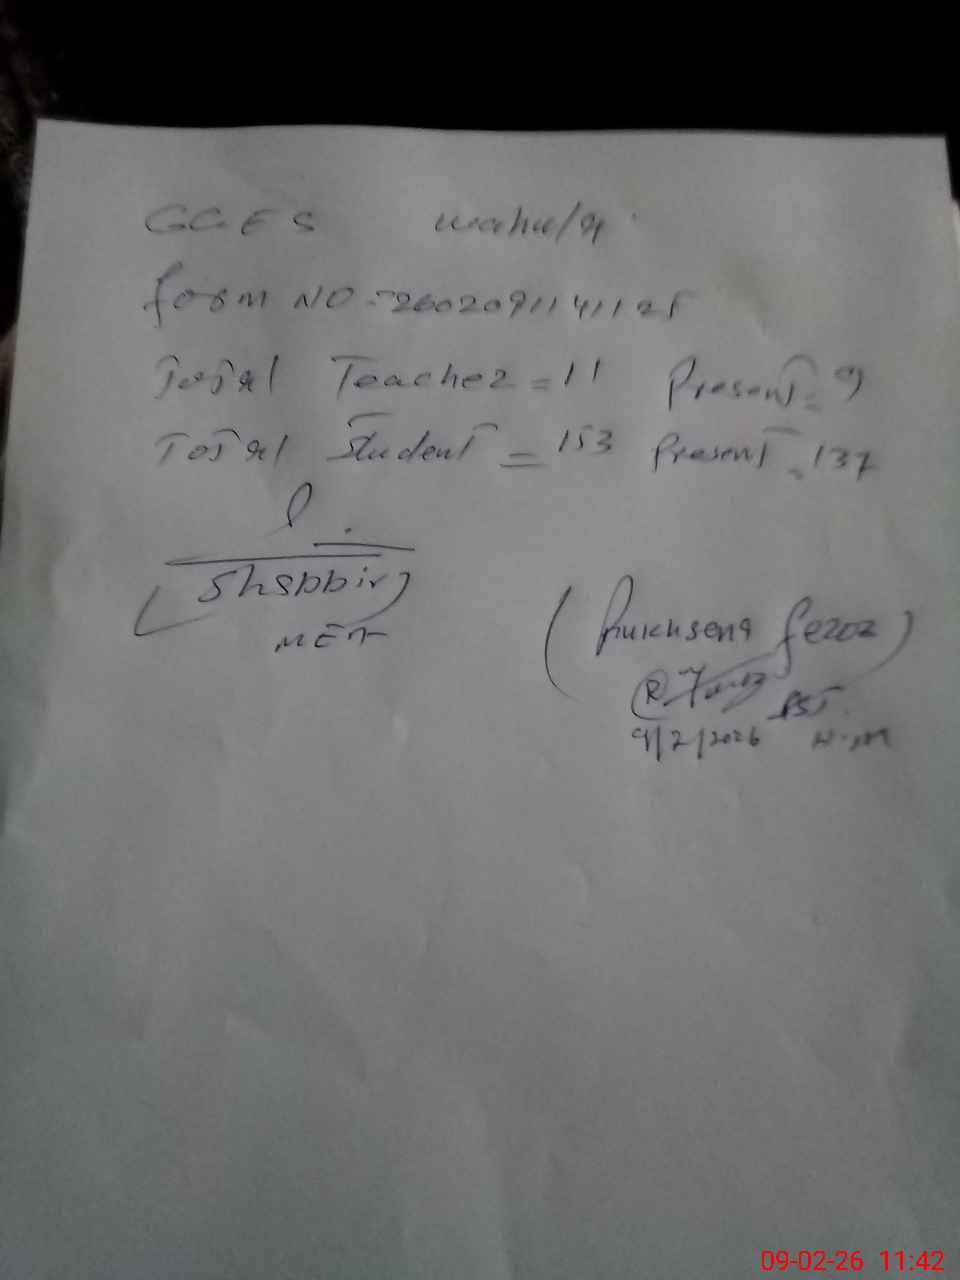 GGES
form NO = 2602091141125
Total Teacher = 11 Present = 9
Total Student = 153 Present = 137
(Shabbir)
(Rukhsana feroz)
PST
9/2/2026
09-02-26 11:42